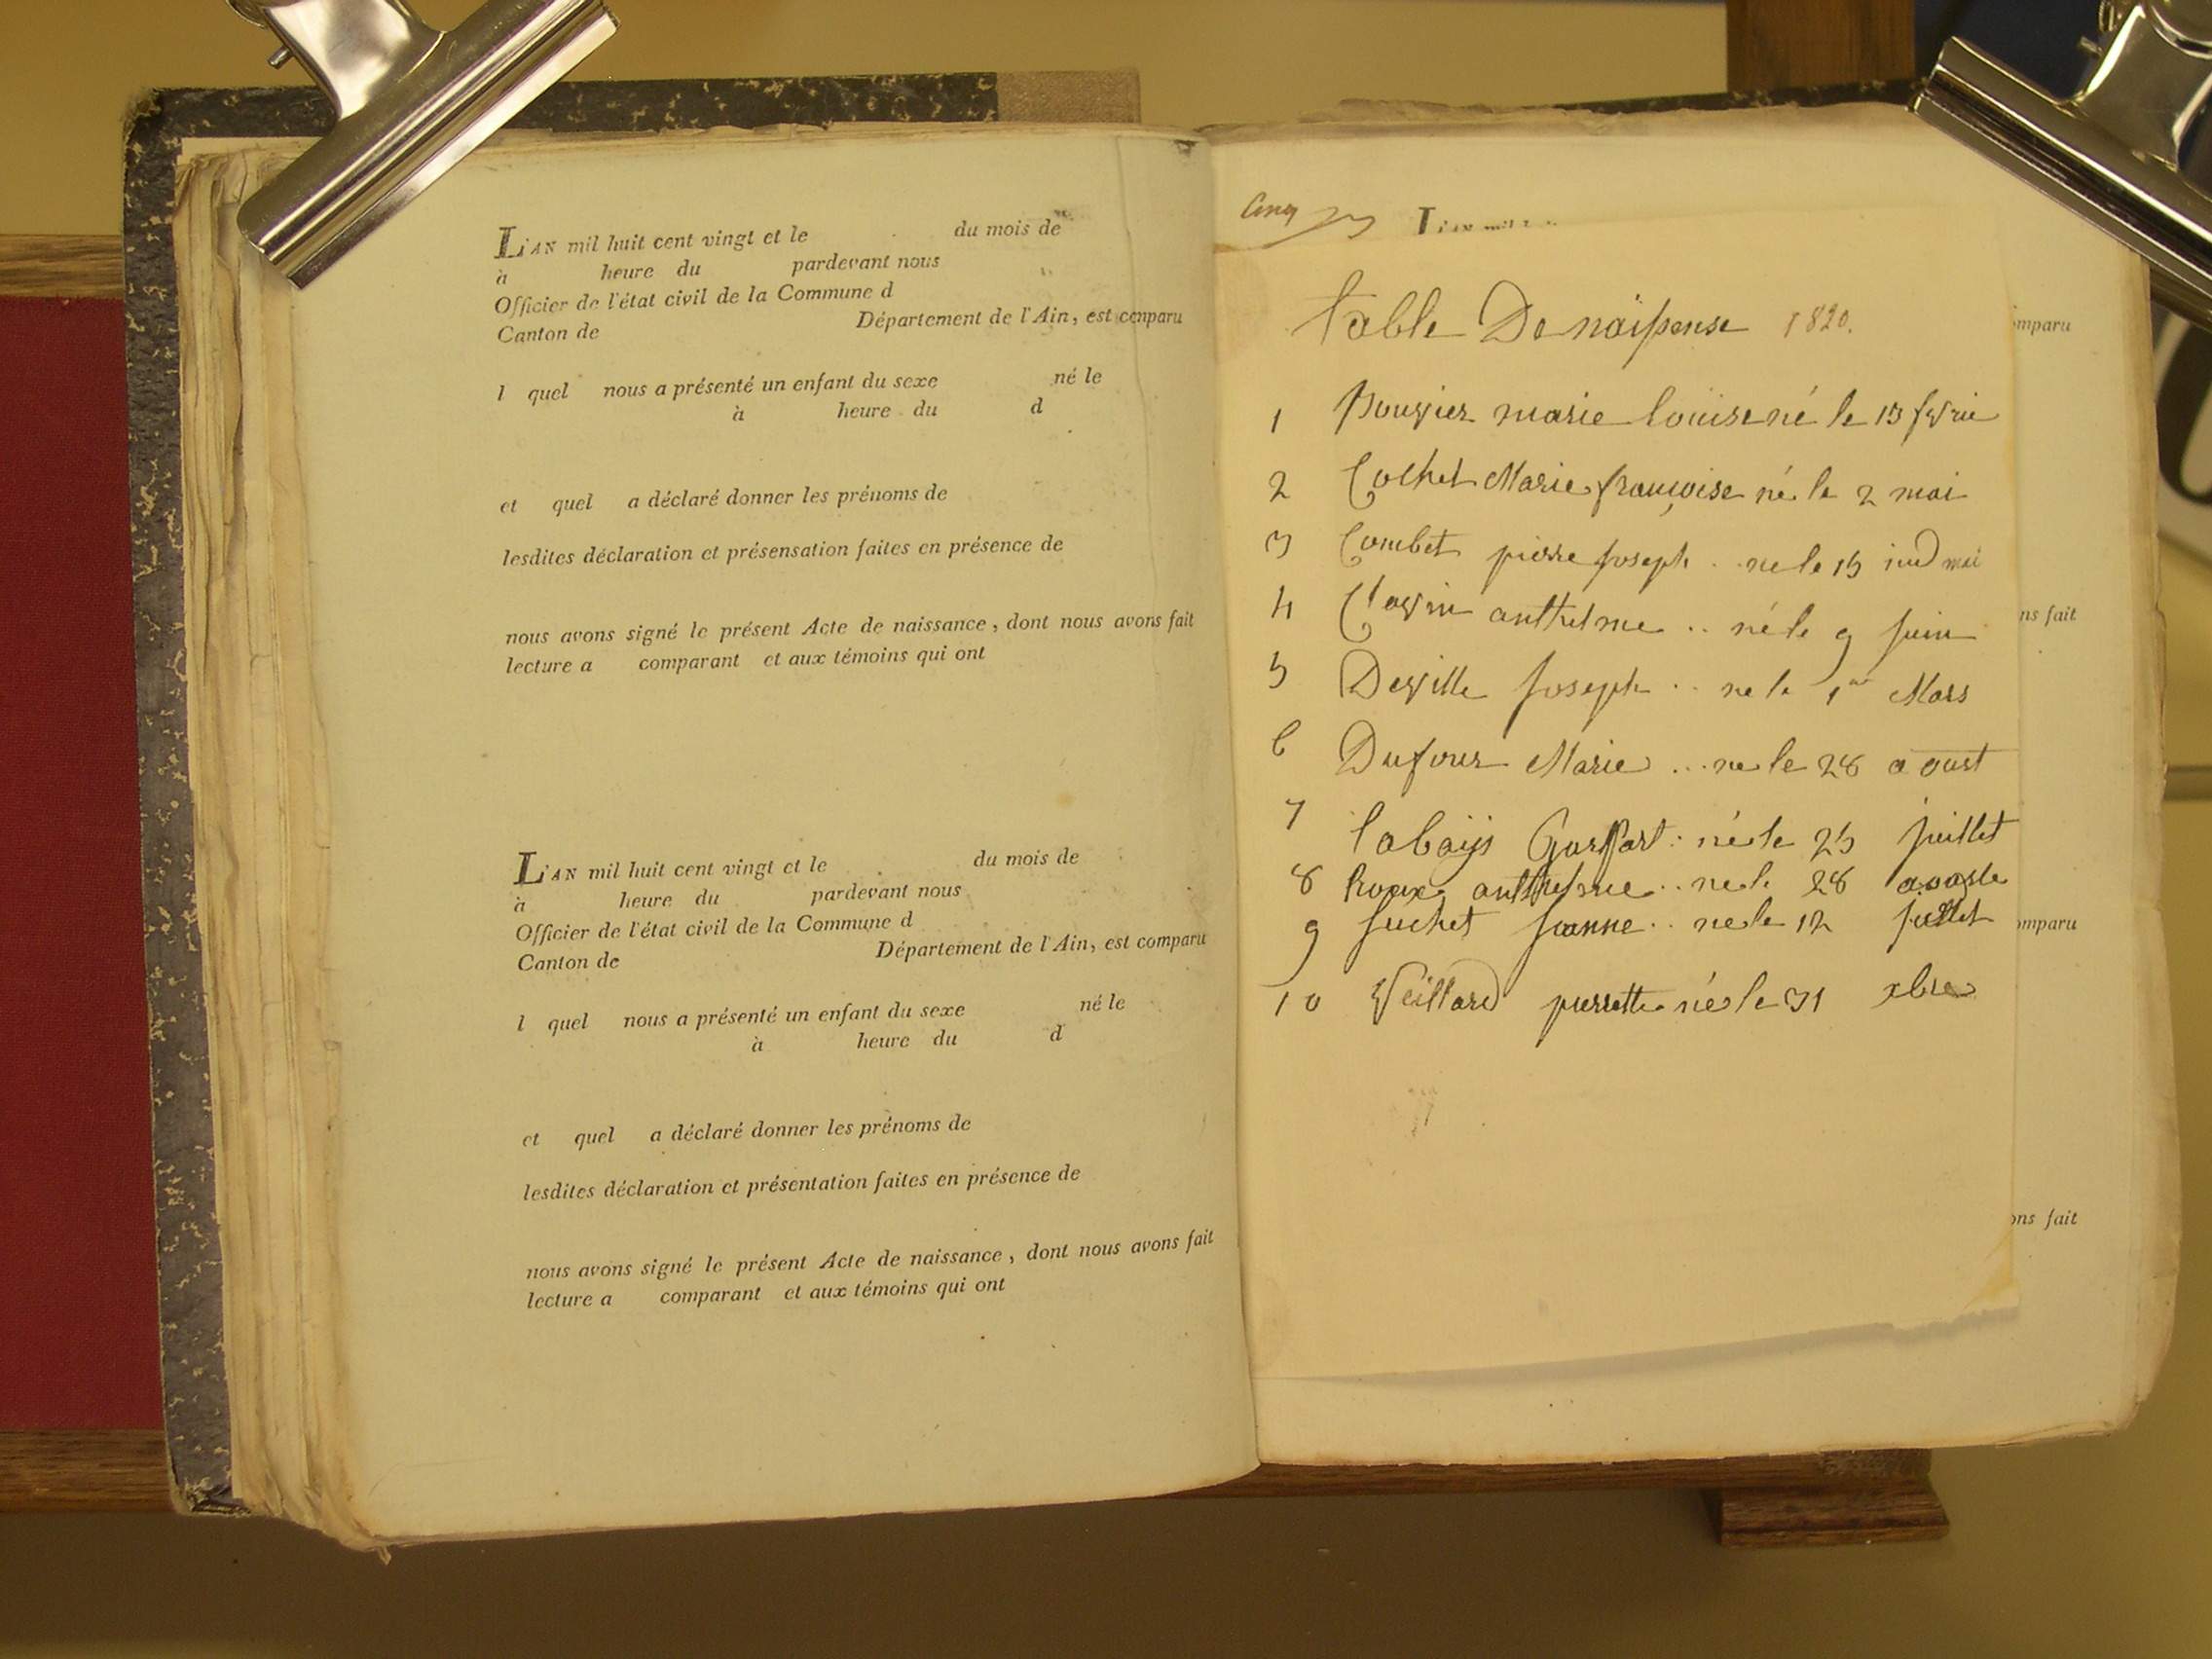 L'AN mil huit cent vingt et le du mois de
à heure du pardevant nous
Officier de l'état civil de la Commune d
Canton de Département de l'Ain, est comparu
l quel nous a présenté un enfant du sexe né le
à heure du d
et quel a déclaré donner les prénoms de
lesdites déclaration et présensation faites en présence de
nous avons signé le présent Acte de naissance, dont nous avons fait
lecture a comparant et aux témoins qui ont
L'AN mil huit cent vingt et le du mois de
à heure du pardevant nous
Officier de l'état civil de la Commune d
Canton de Département de l'Ain, est comparu
l quel nous a présenté un enfant du sexe né le
à heure du d
et quel a déclaré donner les prénoms de
lesdites déclaration et présentation faites en présence de
nous avons signé le présent Acte de naissance, dont nous avons fait
lecture a comparant et aux témoins qui ont
Cinq
L'AN mil
Table De naissense 1820.
1 Bouvier marie louise né le 15
2 Cochet Marie françoise né le 2 mai
3 Combet pierre joseph .. ne le 15 mai
4 anthelme .. né le 9 juin
5 Deville joseph .. ne le 1er Mars
6 Dufour Marie ... ne le 28 aoust
7 labaÿs Gaspart : né le 25 juillet
8 Roux anthelme .. ne le 28 aouste
9 Suchet jeanne .. ne le 12 juillet
10 Veillard pierrette née le 31 xbre
omparu
ns fait
omparu
ons fait